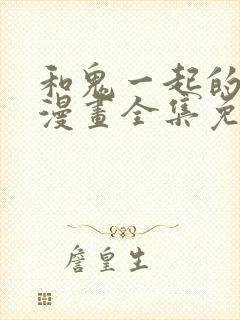 和鬼一起的
漫畫全集免
詹皇生